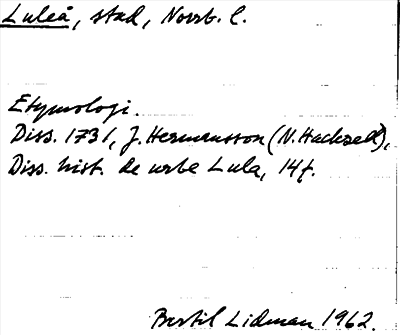 Luleå, stad, Norrb. l.
Etymologi.
Diss. 1731, J. Hermansson (N. Hackzell),
Diss. hist. de urbe Lula, 14 f.
Bertil Lidman 1962.